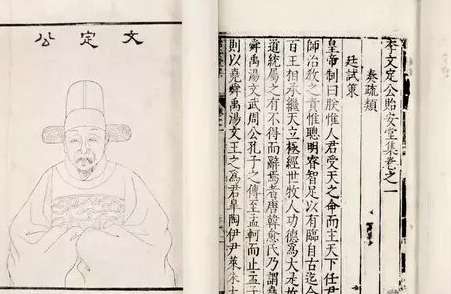 李文定公貽安堂集卷之一
奏疏類
廷試策
皇帝制曰朕惟人君受天之命而主天下任君
師治教之責惟聰明睿智足以有臨自古迄今
百王相承繼天立極經世牧人功德為大是故
道統屬之有不得而辭焉者唐韓愈氏乃謂堯
舜禹湯文武周公孔子之傳至孟軻而止孟子
則以堯舜禹湯文王之為君皐陶伊尹萊朱太
文定公